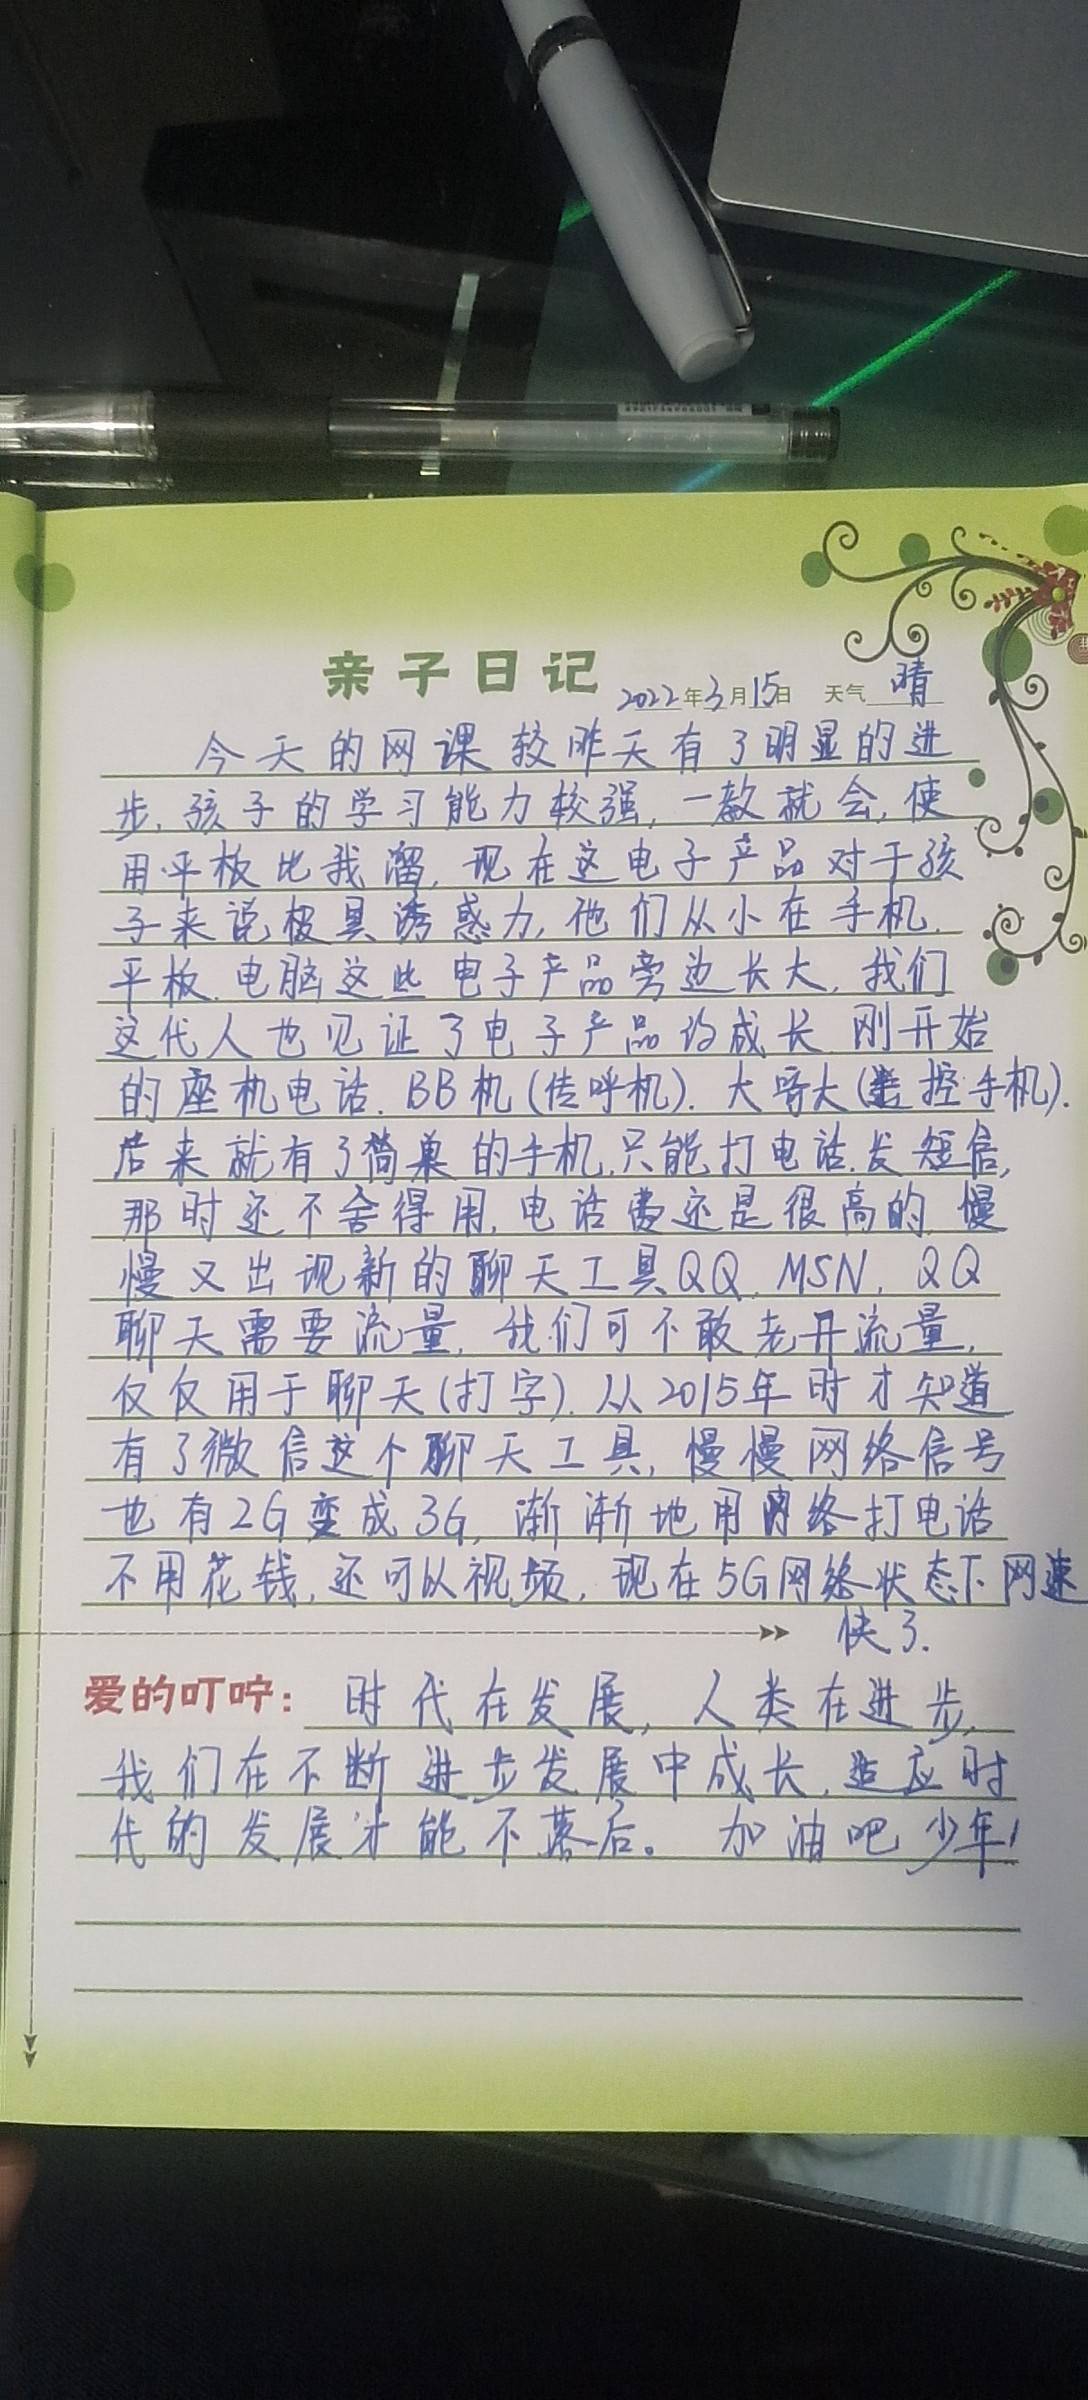 亲子日记
2022年3月15日 天气 晴
今天的网课较昨天有了明显的进
步,孩子的学习能力较强,一教就会,使
用平板比我溜,现在这电子产品对于孩
子来说极具诱惑力,他们从小在手机.
平板.电脑这些电子产品旁边长大,我们
这代人也见证了电子产品的成长.刚开始
的座机电话.BB机(传呼机).大哥大(控手机).
后来就有了简单的手机,只能打电话.发短信,
那时还不舍得用,电话费还是很高的.慢
慢又出现新的聊天工具QQ.MSN,QQ
聊天需要流量,我们可不敢老开流量,
仅仅用于聊天(打字).从2015年时才知道
有了微信这个聊天工具,慢慢网络信号
也有2G变成3G,渐渐地用网络打电话
不用花钱,还可以视频,现在5G网络状态下网速
快了.
爱的叮咛:时代在发展,人类在进步,
我们在不断进步发展中成长,适应时
代的发展才能不落后。加油吧少年!